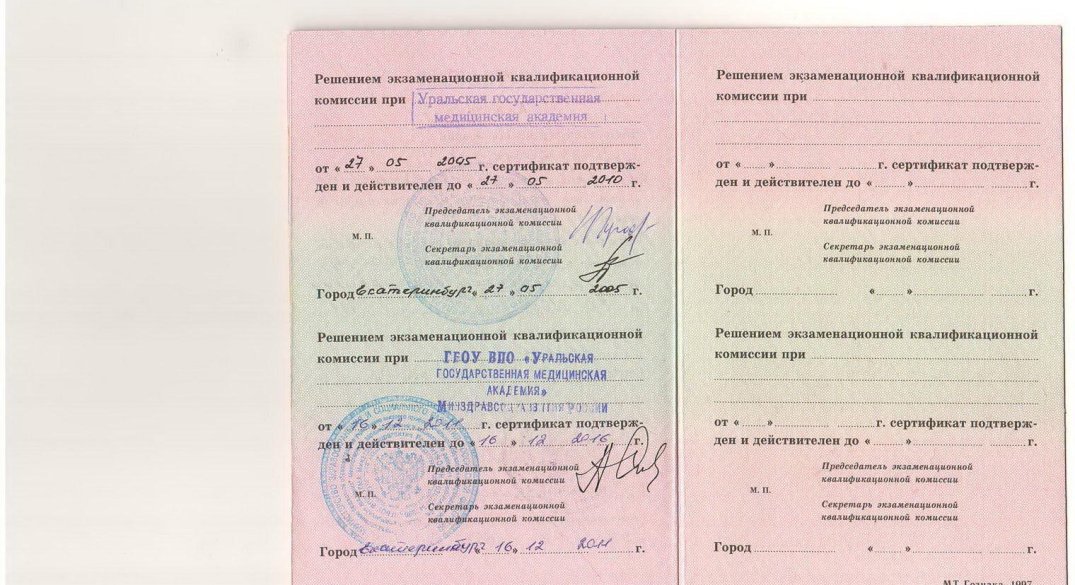 Решением экзаменационной квалификационной
комиссии при Уральская государственная
медицинская академия
от « 27 » 05 2005 г. сертификат подтверж-
ден и действителен до « 27 » 05 2010 г.
Председатель экзаменационной
квалификационной комиссии
М. П.
Секретарь экзаменационной
квалификационной комиссии
Город Екатеринбург « 27 » 05 2005 г.
Решением экзаменационной квалификационной
комиссии при ГБОУ ВПО «Уральская
государственная медицинская
академия»
Минздравсоцразвития России
от « 16 » 12 2011 г. сертификат подтверж-
ден и действителен до « 16 » 12 2016 г.
Председатель экзаменационной
квалификационной комиссии
М. П.
Секретарь экзаменационной
квалификационной комиссии
Город Екатеринбург « 16 » 12 2011 г.
Решением экзаменационной квалификационной
комиссии при
от « » г. сертификат подтверж-
ден и действителен до « » г.
Председатель экзаменационной
квалификационной комиссии
М. П.
Секретарь экзаменационной
квалификационной комиссии
Город « » г.
Решением экзаменационной квалификационной
комиссии при
от « » г. сертификат подтверж-
ден и действителен до « » г.
Председатель экзаменационной
квалификационной комиссии
М. П.
Секретарь экзаменационной
квалификационной комиссии
Город « » г.
МТ Гознака. 1997.